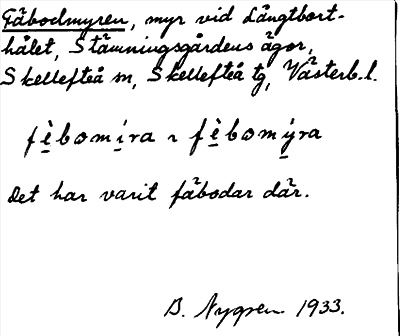 Fäbodmyren, myr vid Långtbort-
hålet, Stämningsgårdens ägor,
Skellefteå sn, Skellefteå tg, Västerb. l.
fèbomíra ɿ fèbomýra
Det har varit fäbodar där.
B. Nygren 1933.